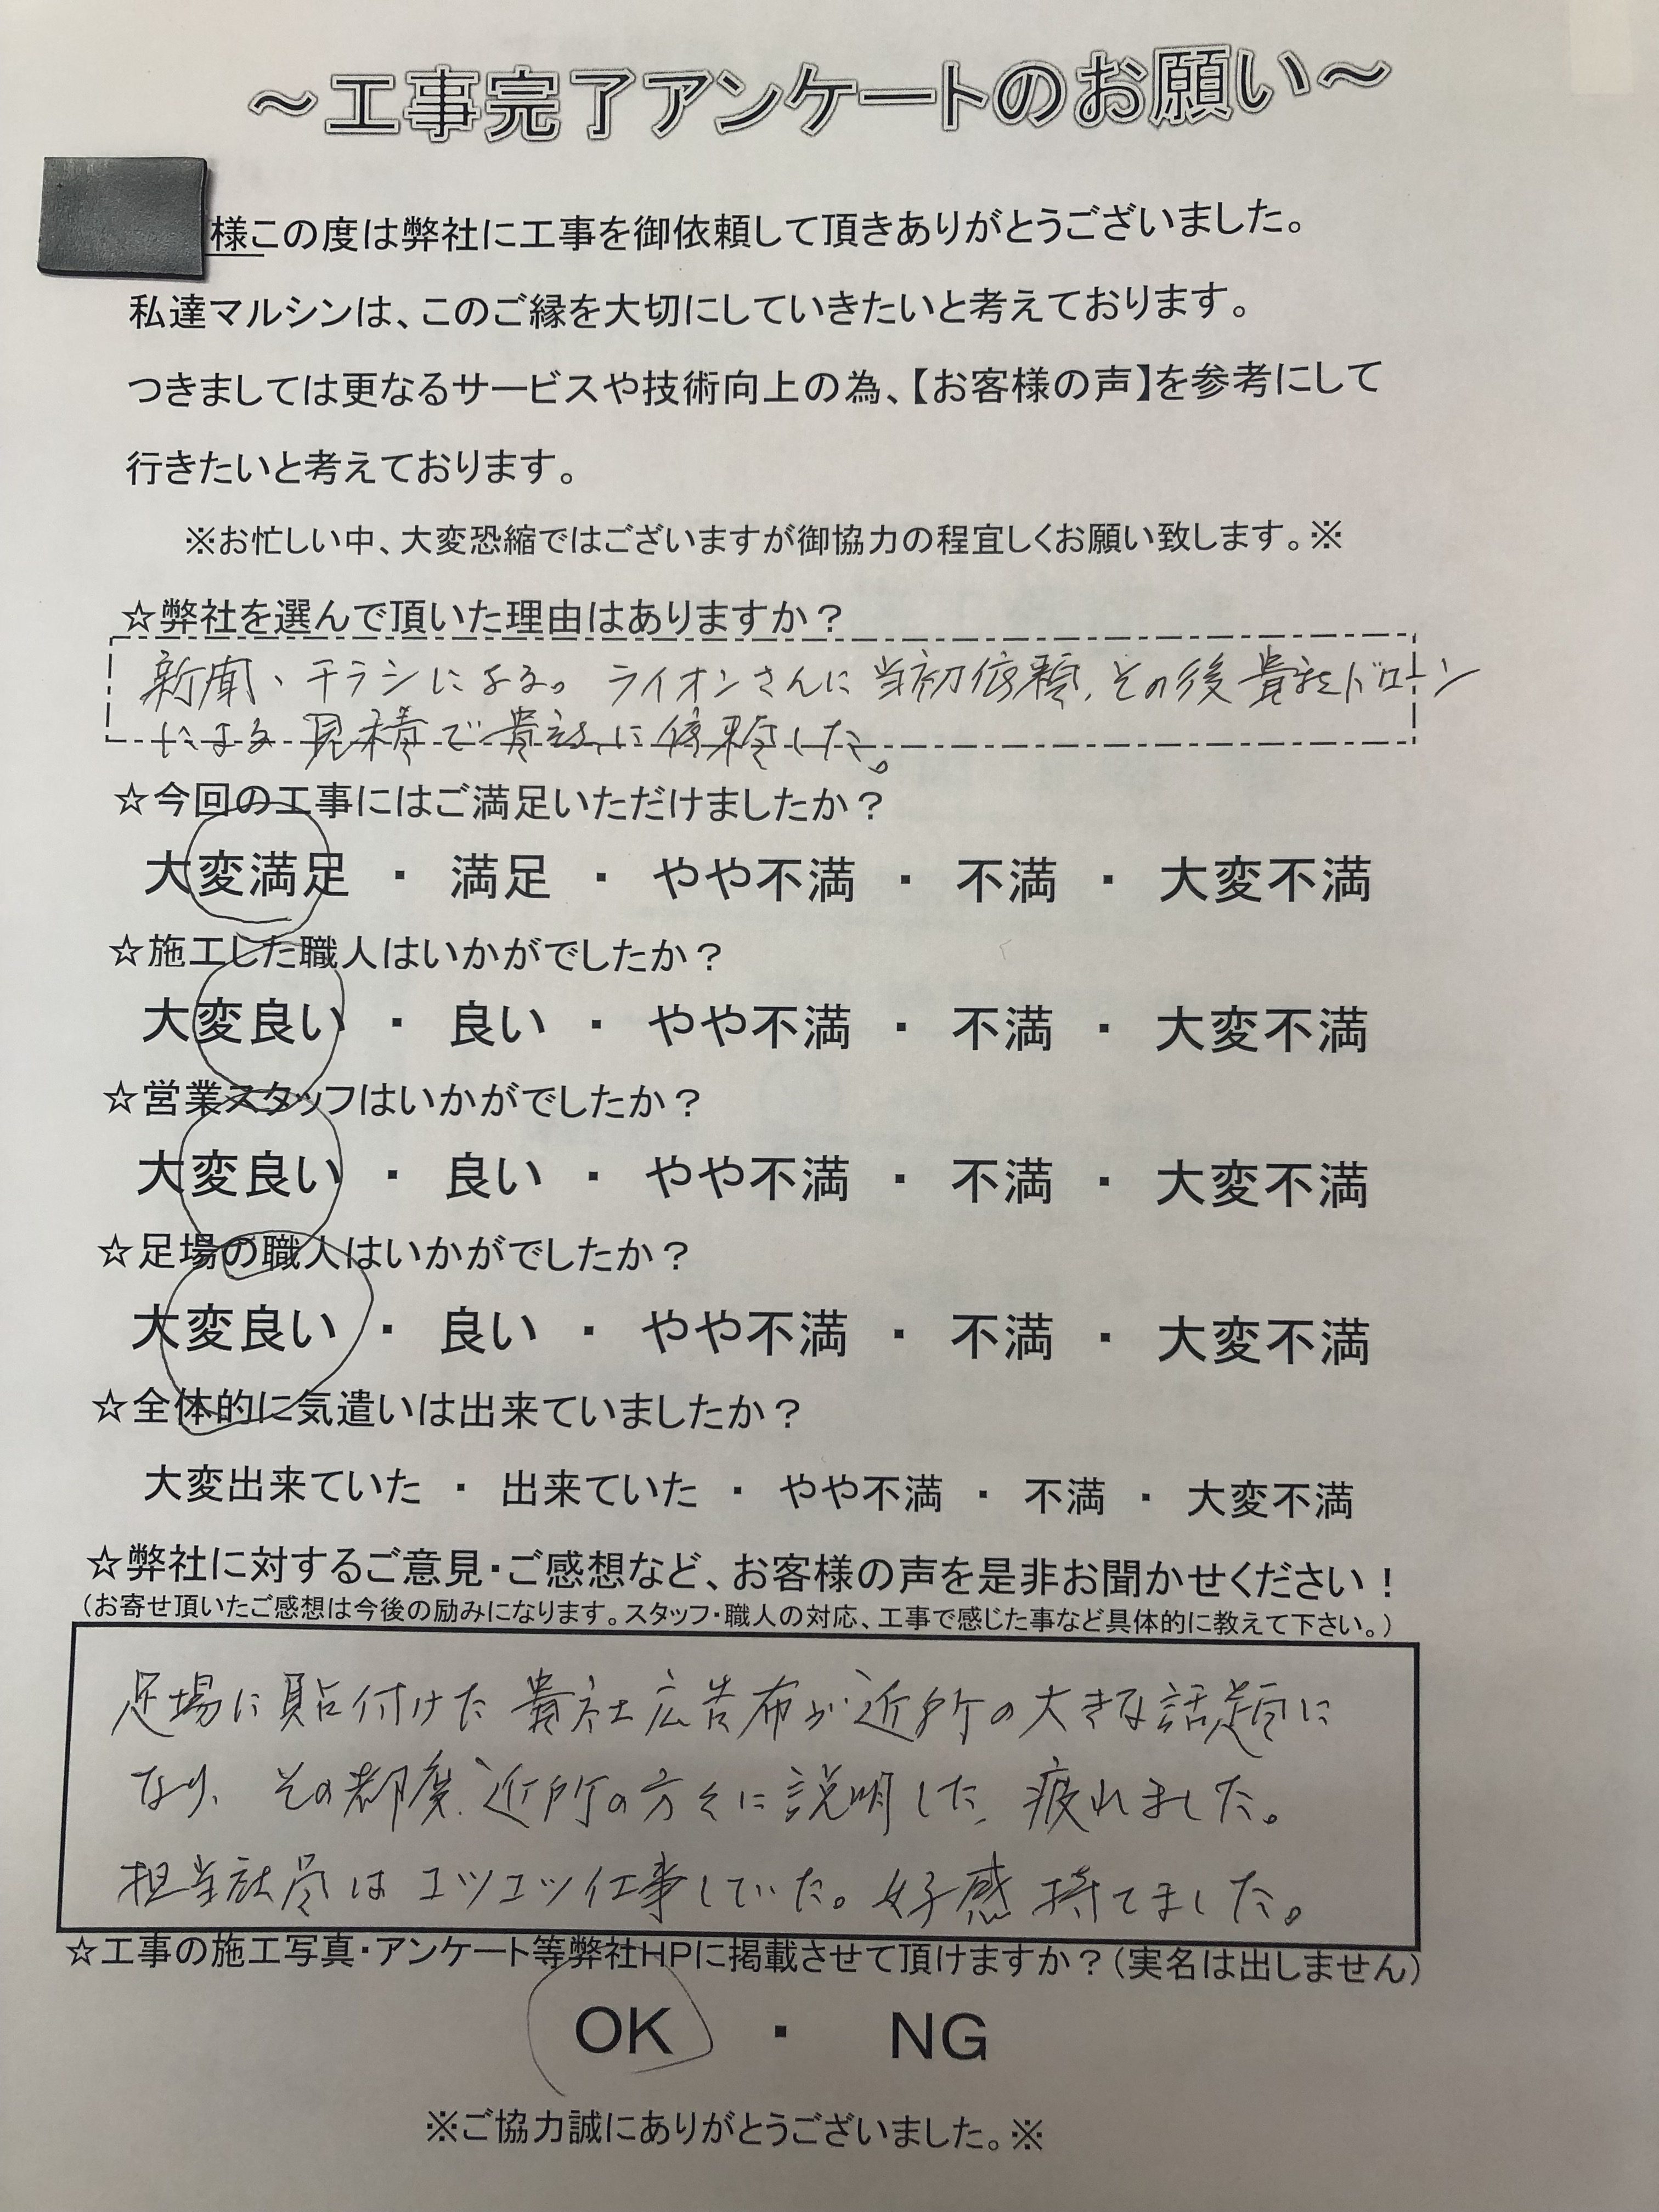 ～工事完了アンケートのお願い～
様この度は弊社に工事を御依頼して頂きありがとうございました。
私達マルシンは、このご縁を大切にしていきたいと考えております。
つきましては更なるサービスや技術向上の為、【お客様の声】を参考にして
行きたいと考えております。
※お忙しい中、大変恐縮ではございますが御協力の程宜しくお願い致します。※
☆弊社を選んで頂いた理由はありますか？
新聞、チラシによる。ライオンさんに当初依頼、その後貴社ドローン
による見積で貴社に依頼した。
☆今回の工事にはご満足いただけましたか？
大変満足 ・ 満足 ・ やや不満 ・ 不満 ・ 大変不満
☆施工した職人はいかがでしたか？
大変良い ・ 良い ・ やや不満 ・ 不満 ・ 大変不満
☆営業スタッフはいかがでしたか？
大変良い ・ 良い ・ やや不満 ・ 不満 ・ 大変不満
☆足場の職人はいかがでしたか？
大変良い ・ 良い ・ やや不満 ・ 不満 ・ 大変不満
☆全体的に気遣いは出来ていましたか？
大変出来ていた ・ 出来ていた ・ やや不満 ・ 不満 ・ 大変不満
☆弊社に対するご意見・ご感想など、お客様の声を是非お聞かせください！
（お寄せ頂いたご感想は今後の励みになります。スタッフ・職人の対応、工事で感じた事など具体的に教えて下さい。）
足場に貼付けた貴社広告布が近所の大きな話題に
なり、その都度、近所の方々に説明した、疲れました。
担当社員はコツコツ仕事していた。好感持てました。
☆工事の施工写真・アンケート等弊社HPに掲載させて頂けますか？（実名は出しません）
OK ・ NG
※ご協力誠にありがとうございました。※